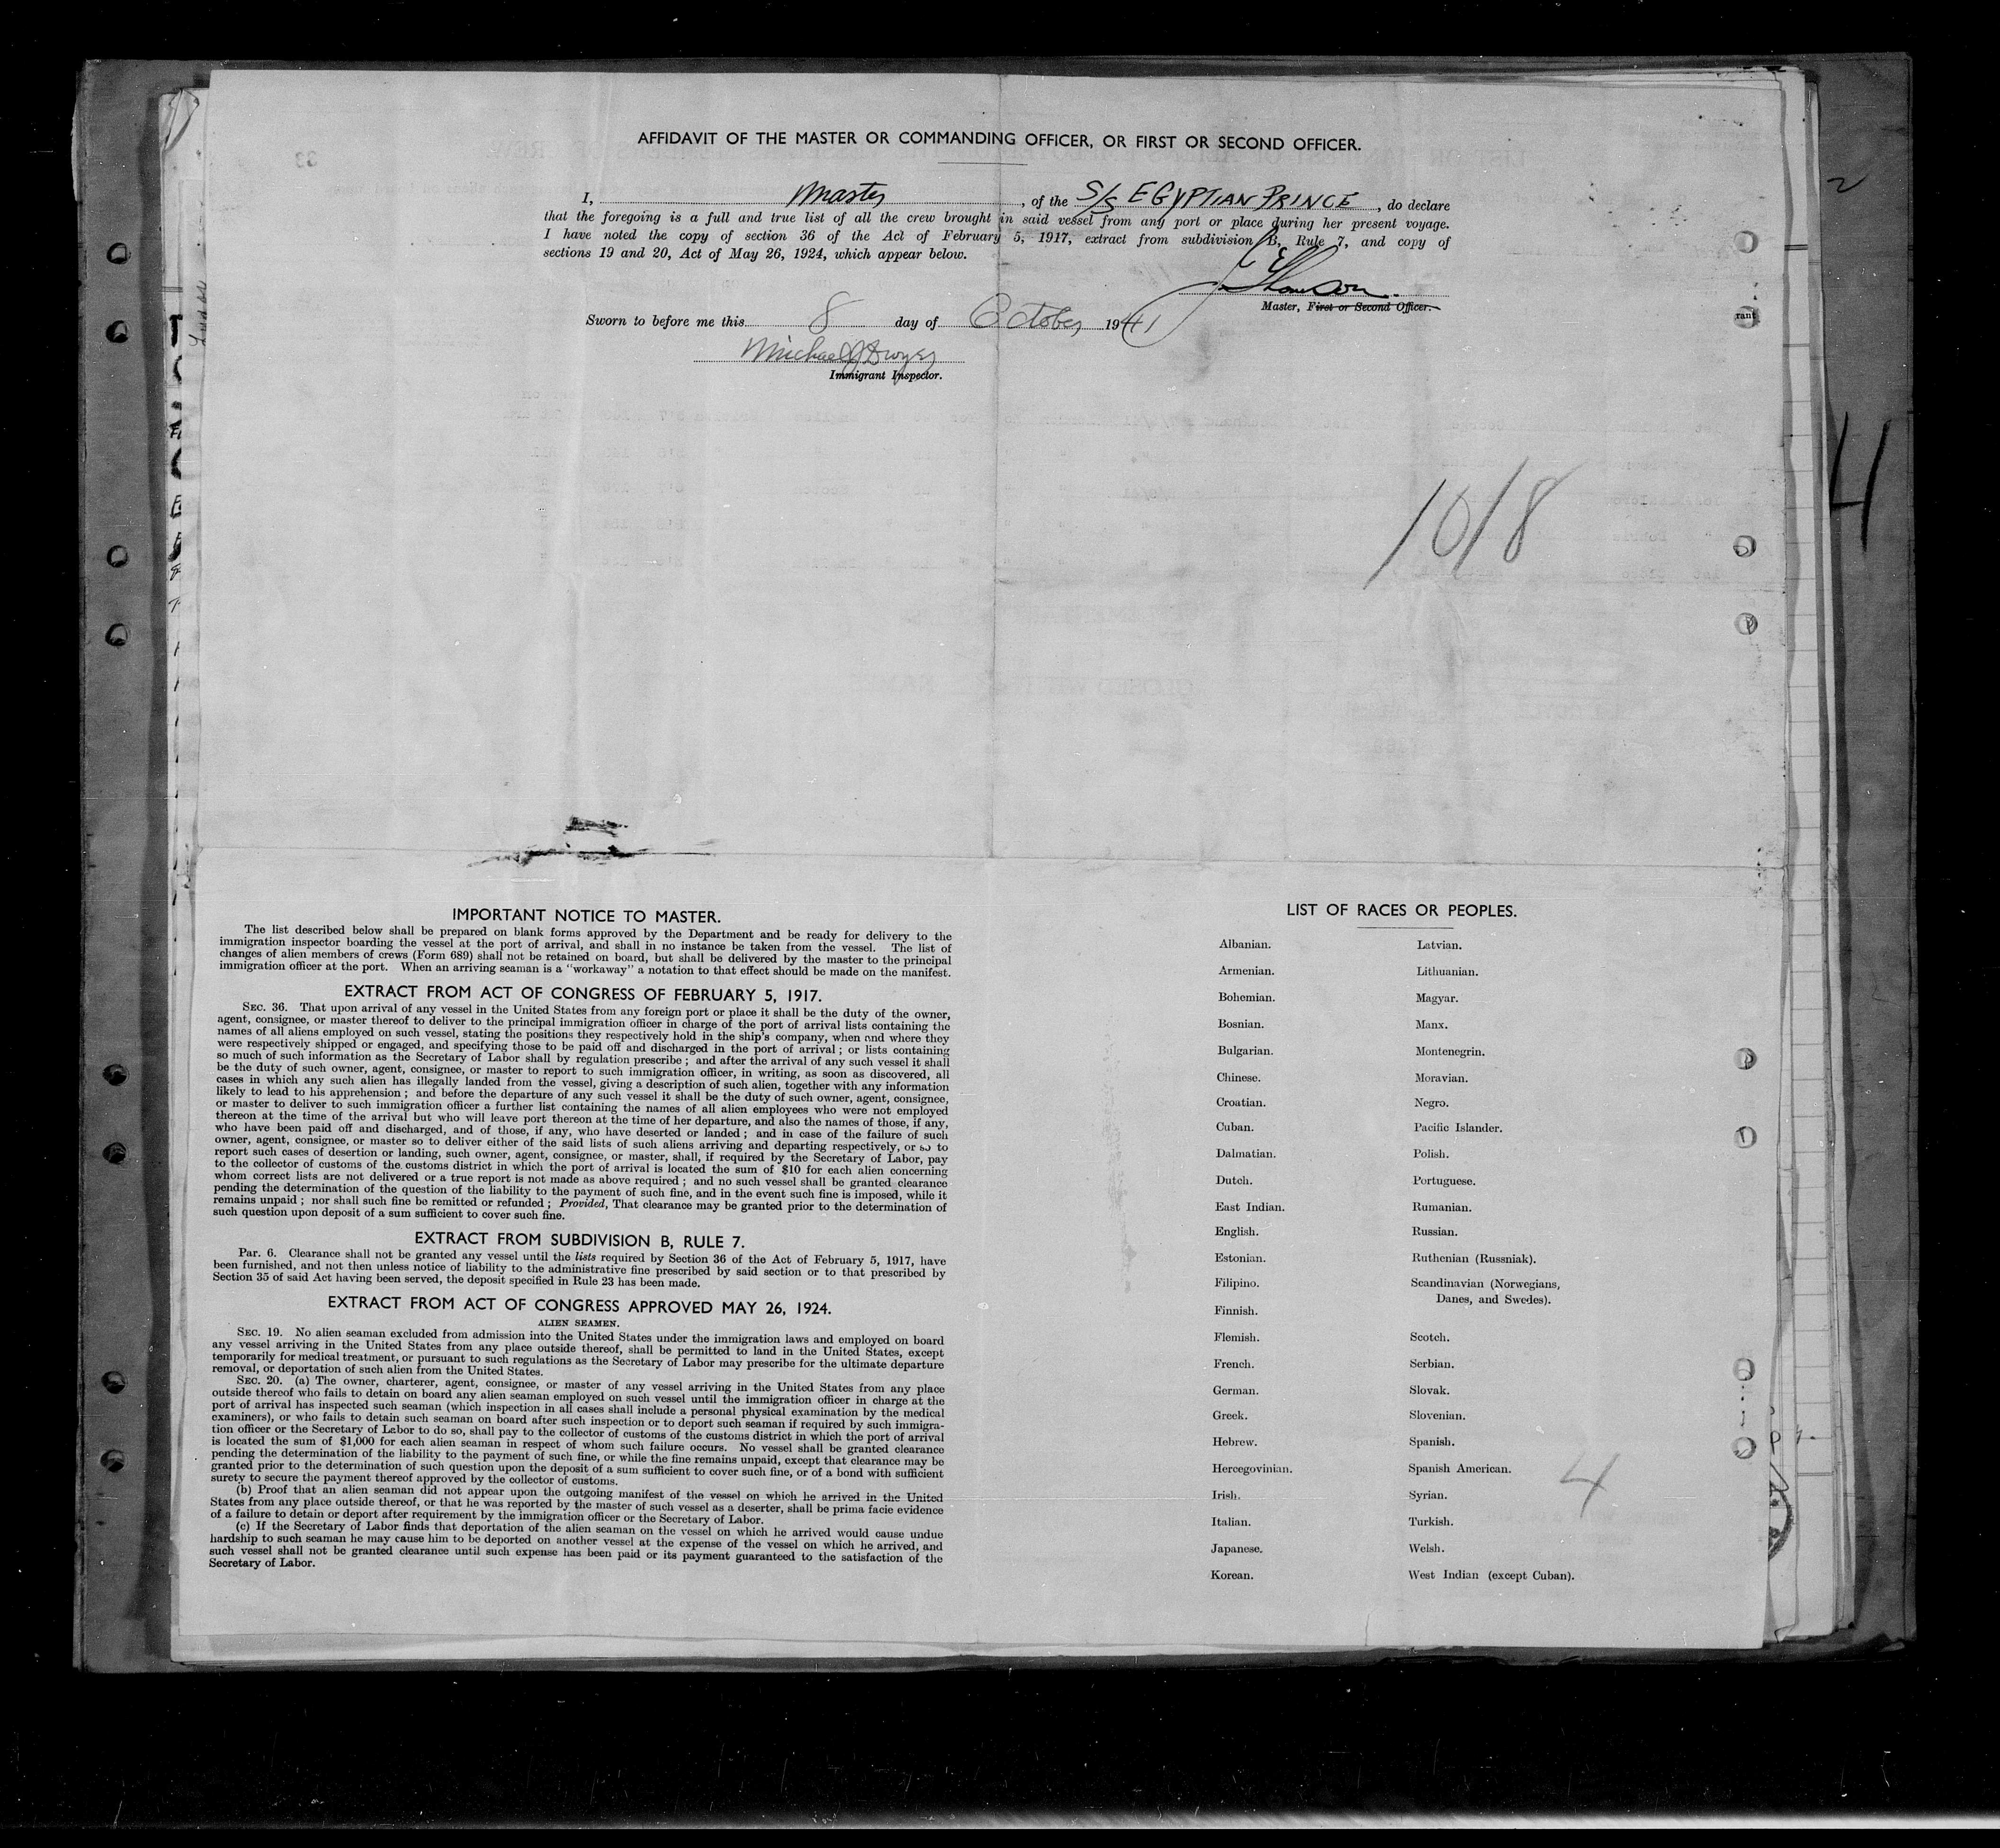 AFFIDAVIT OF THE MASTER OR COMMANDING OFFICER, OR FIRST OR SECOND OFFICER.
I, Master, of the S/S EGYPTIAN PRINCE, do declare
that the foregoing is a full and true list of all the crew brought in said vessel from any port or place during her present voyage.
I have noted the copy of section 36 of the Act of February 5, 1917, extract from subdivision B, Rule 7, and copy of
sections 19 and 20, Act of May 26, 1924, which appear below.
Master, First or Second Officer.
Sworn to before me this 8 day of October, 1941
Michael J Dwyer
Immigrant Inspector.
1018
IMPORTANT NOTICE TO MASTER.
The list described below shall be prepared on blank forms approved by the Department and be ready for delivery to the
immigration inspector boarding the vessel at the port of arrival, and shall in no instance be taken from the vessel. The list of
changes of alien members of crews (Form 689) shall not be retained on board, but shall be delivered by the master to the principal
immigration officer at the port. When an arriving seaman is a "workaway" a notation to that effect should be made on the manifest.
EXTRACT FROM ACT OF CONGRESS OF FEBRUARY 5, 1917.
SEC. 36. That upon arrival of any vessel in the United States from any foreign port or place it shall be the duty of the owner,
agent, consignee, or master thereof to deliver to the principal immigration officer in charge of the port of arrival lists containing the
names of all aliens employed on such vessel, stating the positions they respectively hold in the ship's company, when and where they
were respectively shipped or engaged, and specifying those to be paid off and discharged in the port of arrival; or lists containing
so much of such information as the Secretary of Labor shall by regulation prescribe; and after the arrival of any such vessel it shall
be the duty of such owner, agent, consignee, or master to report to such immigration officer, in writing, as soon as discovered, all
cases in which any such alien has illegally landed from the vessel, giving a description of such alien, together with any information
likely to lead to his apprehension; and before the departure of any such vessel it shall be the duty of such owner, agent, consignee,
or master to deliver to such immigration officer a further list containing the names of all alien employees who were not employed
thereon at the time of the arrival but who will leave port thereon at the time of her departure, and also the names of those, if any,
who have been paid off and discharged, and of those, if any, who have deserted or landed; and in case of the failure of such
owner, agent, consignee, or master so to deliver either of the said lists of such aliens arriving and departing respectively, or so to
report such cases of desertion or landing, such owner, agent, consignee, or master, shall, if required by the Secretary of Labor, pay
to the collector of customs of the customs district in which the port of arrival is located the sum of $10 for each alien concerning
whom correct lists are not delivered or a true report is not made as above required; and no such vessel shall be granted clearance
pending the determination of the question of the liability to the payment of such fine, and in the event such fine is imposed, while it
remains unpaid; nor shall such fine be remitted or refunded; Provided, That clearance may be granted prior to the determination of
such question upon deposit of a sum sufficient to cover such fine.
EXTRACT FROM SUBDIVISION B, RULE 7.
Par. 6. Clearance shall not be granted any vessel until the lists required by Section 36 of the Act of February 5, 1917, have
been furnished, and not then unless notice of liability to the administrative fine prescribed by said section or to that prescribed by
Section 35 of said Act having been served, the deposit specified in Rule 23 has been made.
EXTRACT FROM ACT OF CONGRESS APPROVED MAY 26, 1924.
ALIEN SEAMEN.
SEC. 19. No alien seaman excluded from admission into the United States under the immigration laws and employed on board
any vessel arriving in the United States from any place outside thereof, shall be permitted to land in the United States, except
temporarily for medical treatment, or pursuant to such regulations as the Secretary of Labor may prescribe for the ultimate departure
removal, or deportation of such alien from the United States.
SEC. 20. (a) The owner, charterer, agent, consignee, or master of any vessel arriving in the United States from any place
outside thereof who fails to detain on board any alien seaman employed on such vessel until the immigration officer in charge at the
port of arrival has inspected such seaman (which inspection in all cases shall include a personal physical examination by the medical
examiners), or who fails to detain such seaman on board after such inspection or to deport such seaman if required by such immigra-
tion officer or the Secretary of Labor to do so, shall pay to the collector of customs of the customs district in which the port of arrival
is located the sum of $1,000 for each alien seaman in respect of whom such failure occurs. No vessel shall be granted clearance
pending the determination of the liability to the payment of such fine, or while the fine remains unpaid, except that clearance may be
granted prior to the determination of such question upon the deposit of a sum sufficient to cover such fine, or of a bond with sufficient
surety to secure the payment thereof approved by the collector of customs.
(b) Proof that an alien seaman did not appear upon the outgoing manifest of the vessel on which he arrived in the United
States from any place outside thereof, or that he was reported by the master of such vessel as a deserter, shall be prima facie evidence
of a failure to detain or deport after requirement by the immigration officer or the Secretary of Labor.
(c) If the Secretary of Labor finds that deportation of the alien seaman on the vessel on which he arrived would cause undue
hardship to such seaman he may cause him to be deported on another vessel at the expense of the vessel on which he arrived, and
such vessel shall not be granted clearance until such expense has been paid or its payment guaranteed to the satisfaction of the
Secretary of Labor.
LIST OF RACES OR PEOPLES.
Albanian. Latvian.
Armenian. Lithuanian.
Bohemian. Magyar.
Bosnian. Manx.
Bulgarian. Montenegrin.
Chinese. Moravian.
Croatian. Negro.
Cuban. Pacific Islander.
Dalmatian. Polish.
Dutch. Portuguese.
East Indian. Rumanian.
English. Russian.
Estonian. Ruthenian (Russniak).
Filipino. Scandinavian (Norwegians,
Danes, and Swedes).
Finnish.
Flemish. Scotch.
French. Serbian.
German. Slovak.
Greek. Slovenian.
Hebrew. Spanish.
Hercegovinian. Spanish American.
Irish. Syrian.
Italian. Turkish.
Japanese. Welsh.
Korean. West Indian (except Cuban).
4
2
4
rant